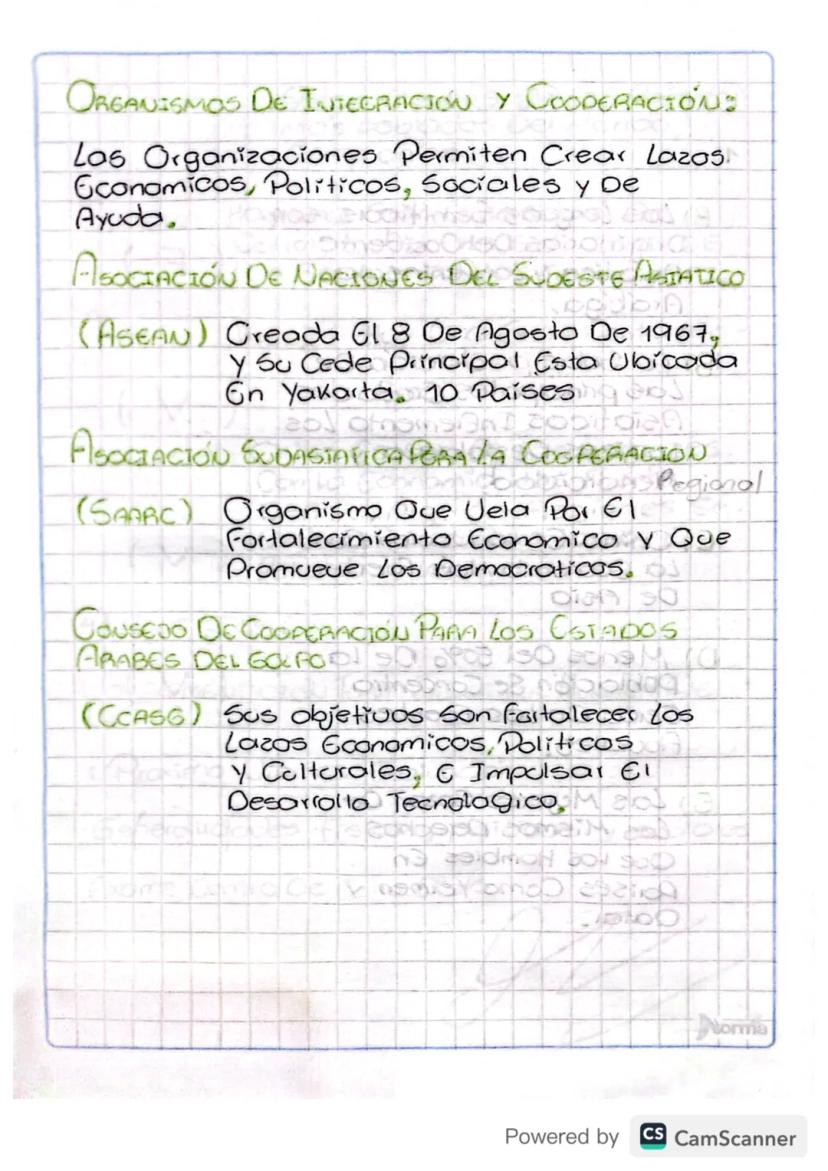 ORGANISMOS DE INTEGRACIÓN Y COOPERACIÓN:
Las Organizaciones Permiten Crear Lazos
Economicos, Políticos, Sociales y De
Ayuda.
ASOCIACIÓN DE NACIONES DEL SUDESTE ASIATICO
(ASEAN) Creada El 8 De Agosto De 1967,
y Su Cede Principal Esta Ubicada
En Yakarta. 10 Países
ASOCIACIÓN SUDASIATICA PARA LA COOPERACION
Regional
(SAARC) Organismo Que Vela Por El
Fortalecimiento Economico y Que
Promueve Los Democraticos.
CONSEJO DE COOPERACIÓN PARA LOS ESTADOS
ARABES DEL GOLFO
(CCASG) Sus objetivos Son Fortalecer Los
Lazos Economicos, Políticos
y Culturales, E Impulsar El
Desarrollo Tecnologico.
Norma
Powered by CS CamScanner